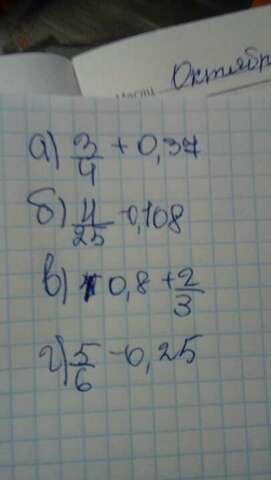 Октябр
а) 3/4 + 0,37
б) 11/25 - 0,108
в) 0,8 + 2/3
г) 5/6 - 0,25